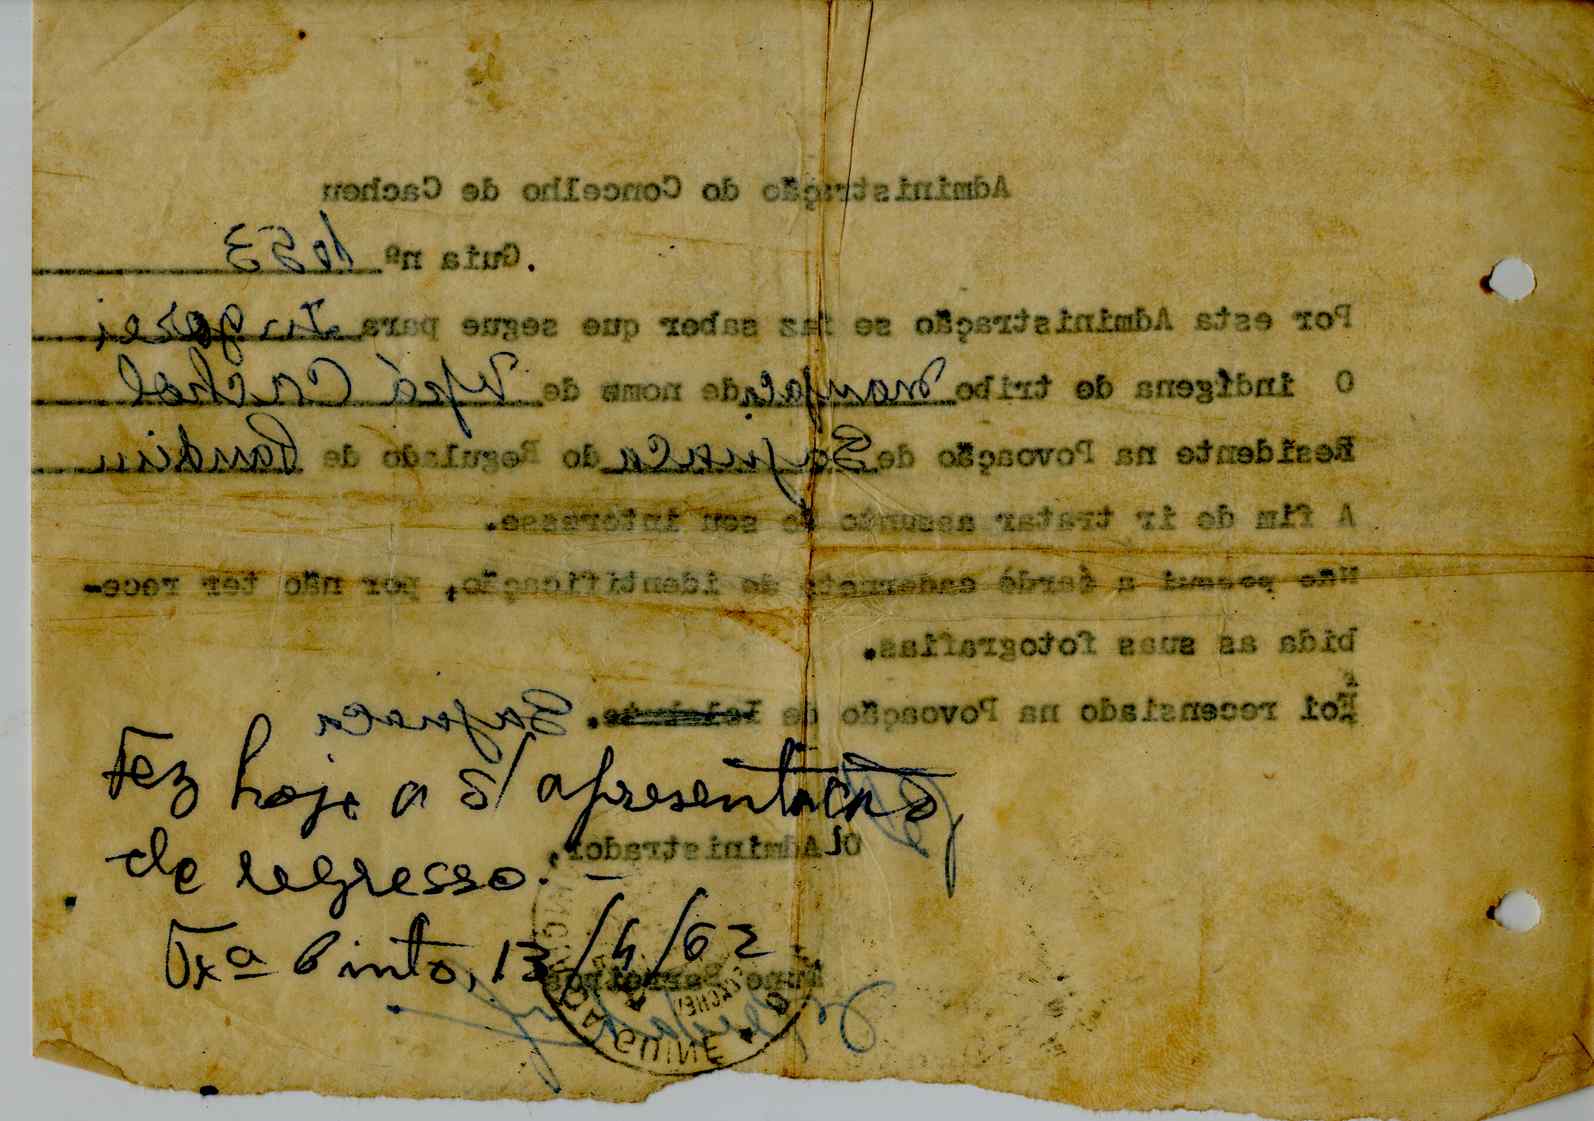 Administração do Concelho de Cacheu
Guia nº 1053
Por esta Administração se faz saber que segue para Ingorei
O indígena de tribo Manjaca de nome de Upá Cachol
Residente na Povoação de Bajunca do Regulado de Pandim
A fim de ir tratar assunto de seu interesse.
Não possui a cardé caderneta de identificação, por não ter rece-
bida as suas fotografias.
Foi recensiado na Povoação de
Fez hoje a s/ apresentação
de regresso. -
O Administrador,
Txª Pinto, 13/4/62
GUINÉ